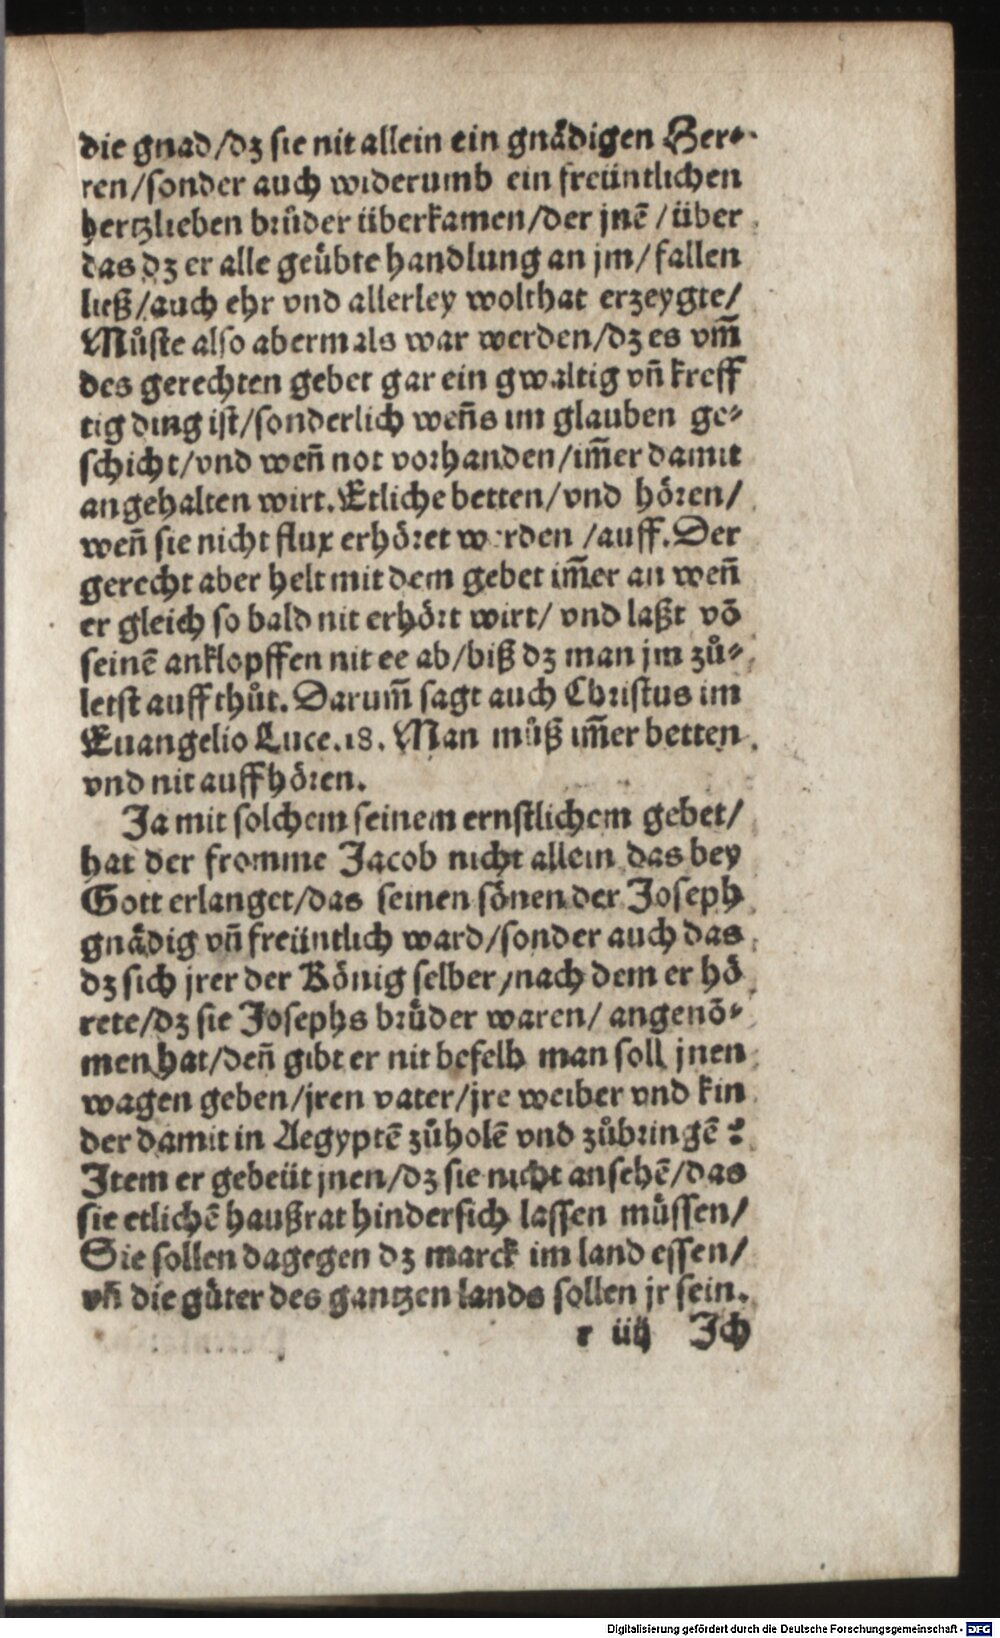 die gnad/dz sie nit allein ein gnådigen Her⸗
ren/sonder auch widerumb ein freüntlichen
hertzlieben brůder überkamen/der jnē/über
das dz er alle geübte handlung an jm/fallen
ließ/auch ehr vnd allerley wolthat erzeygte/
Můste also abermals war werden/dz es vm̄
des gerechten gebet gar ein gwaltig vn̄ kreff
tig ding ist/sonderlich wen̄s im glauben ge⸗
schicht/vnd wen̄ not vorhanden/im̄er damit
angehalten wirt. Etliche betten/vnd hören/
wen̄ sie nicht flux erhöret werden/auff. Der
gerecht aber helt mit dem gebet im̄er an wen̄
er gleich so bald nit erhört wirt/vnd laßt vō
seinē anklopffen nit ee ab/biß dz man jm zů⸗
letst auff thůt. Darum̄ sagt auch Christus im
Euangelio Luce.18. Man můß im̄er betten
vnd nit auffhören.
Ja mit solchem seinem ernstlichem gebet/
hat der fromme Jacob nicht allein das bey
Gott erlanget/das seinen sönen der Joseph
gnådig vn̄ freüntlich ward/sonder auch das
dz sich jrer der König selber/nach dem er hö
rete/dz sie Josephs brüder waren/angenō⸗
men hat/den̄ gibt er nit befelh man soll jnen
wagen geben/jren vater/jre weiber vnd kin
der damit in Aegyptē zůholē vnd zůbringē?
Item er gebeüt jnen/dz sie nicht ansehē/das
sie etlichē haußrat hindersich lassen müssen/
Sie sollen dagegen dz marck im land essen/
vn̄ die güter des gantzen lands sollen jr sein.
r iiij Ich
Digitalisierung gefördert durch die Deutsche Forschungsgemeinschaft - DFG